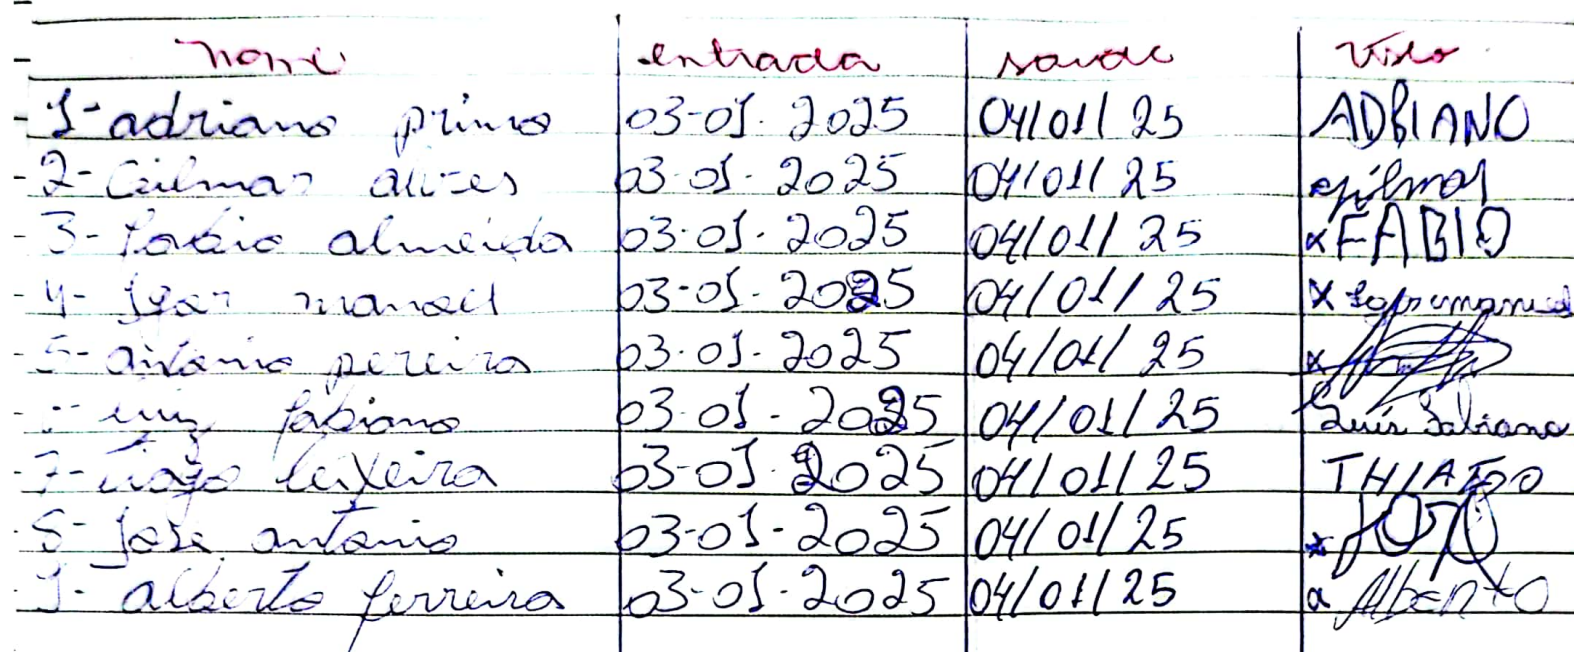 nome entrada saide visto
1- adriano primo 03-01-2025 04/01/25 ADRIANO
2- Gilmar alves 03-01-2025 04/01/25 gilmar
3- Fabio almeida 03-01-2025 04/01/25 x FABIO
4- Igor manoel 03-01-2025 04/01/25 x
5- antonio pereira 03-01-2025 04/01/25 x
luiz fabiano 03-01-2025 04/01/25 Luis Fabiano
7- tiago teixeira 03-01-2025 04/01/25 THIAGO
8- José antonio 03-01-2025 04/01/25 x José
alberto ferreira 03-01-2025 04/01/25 Alberto